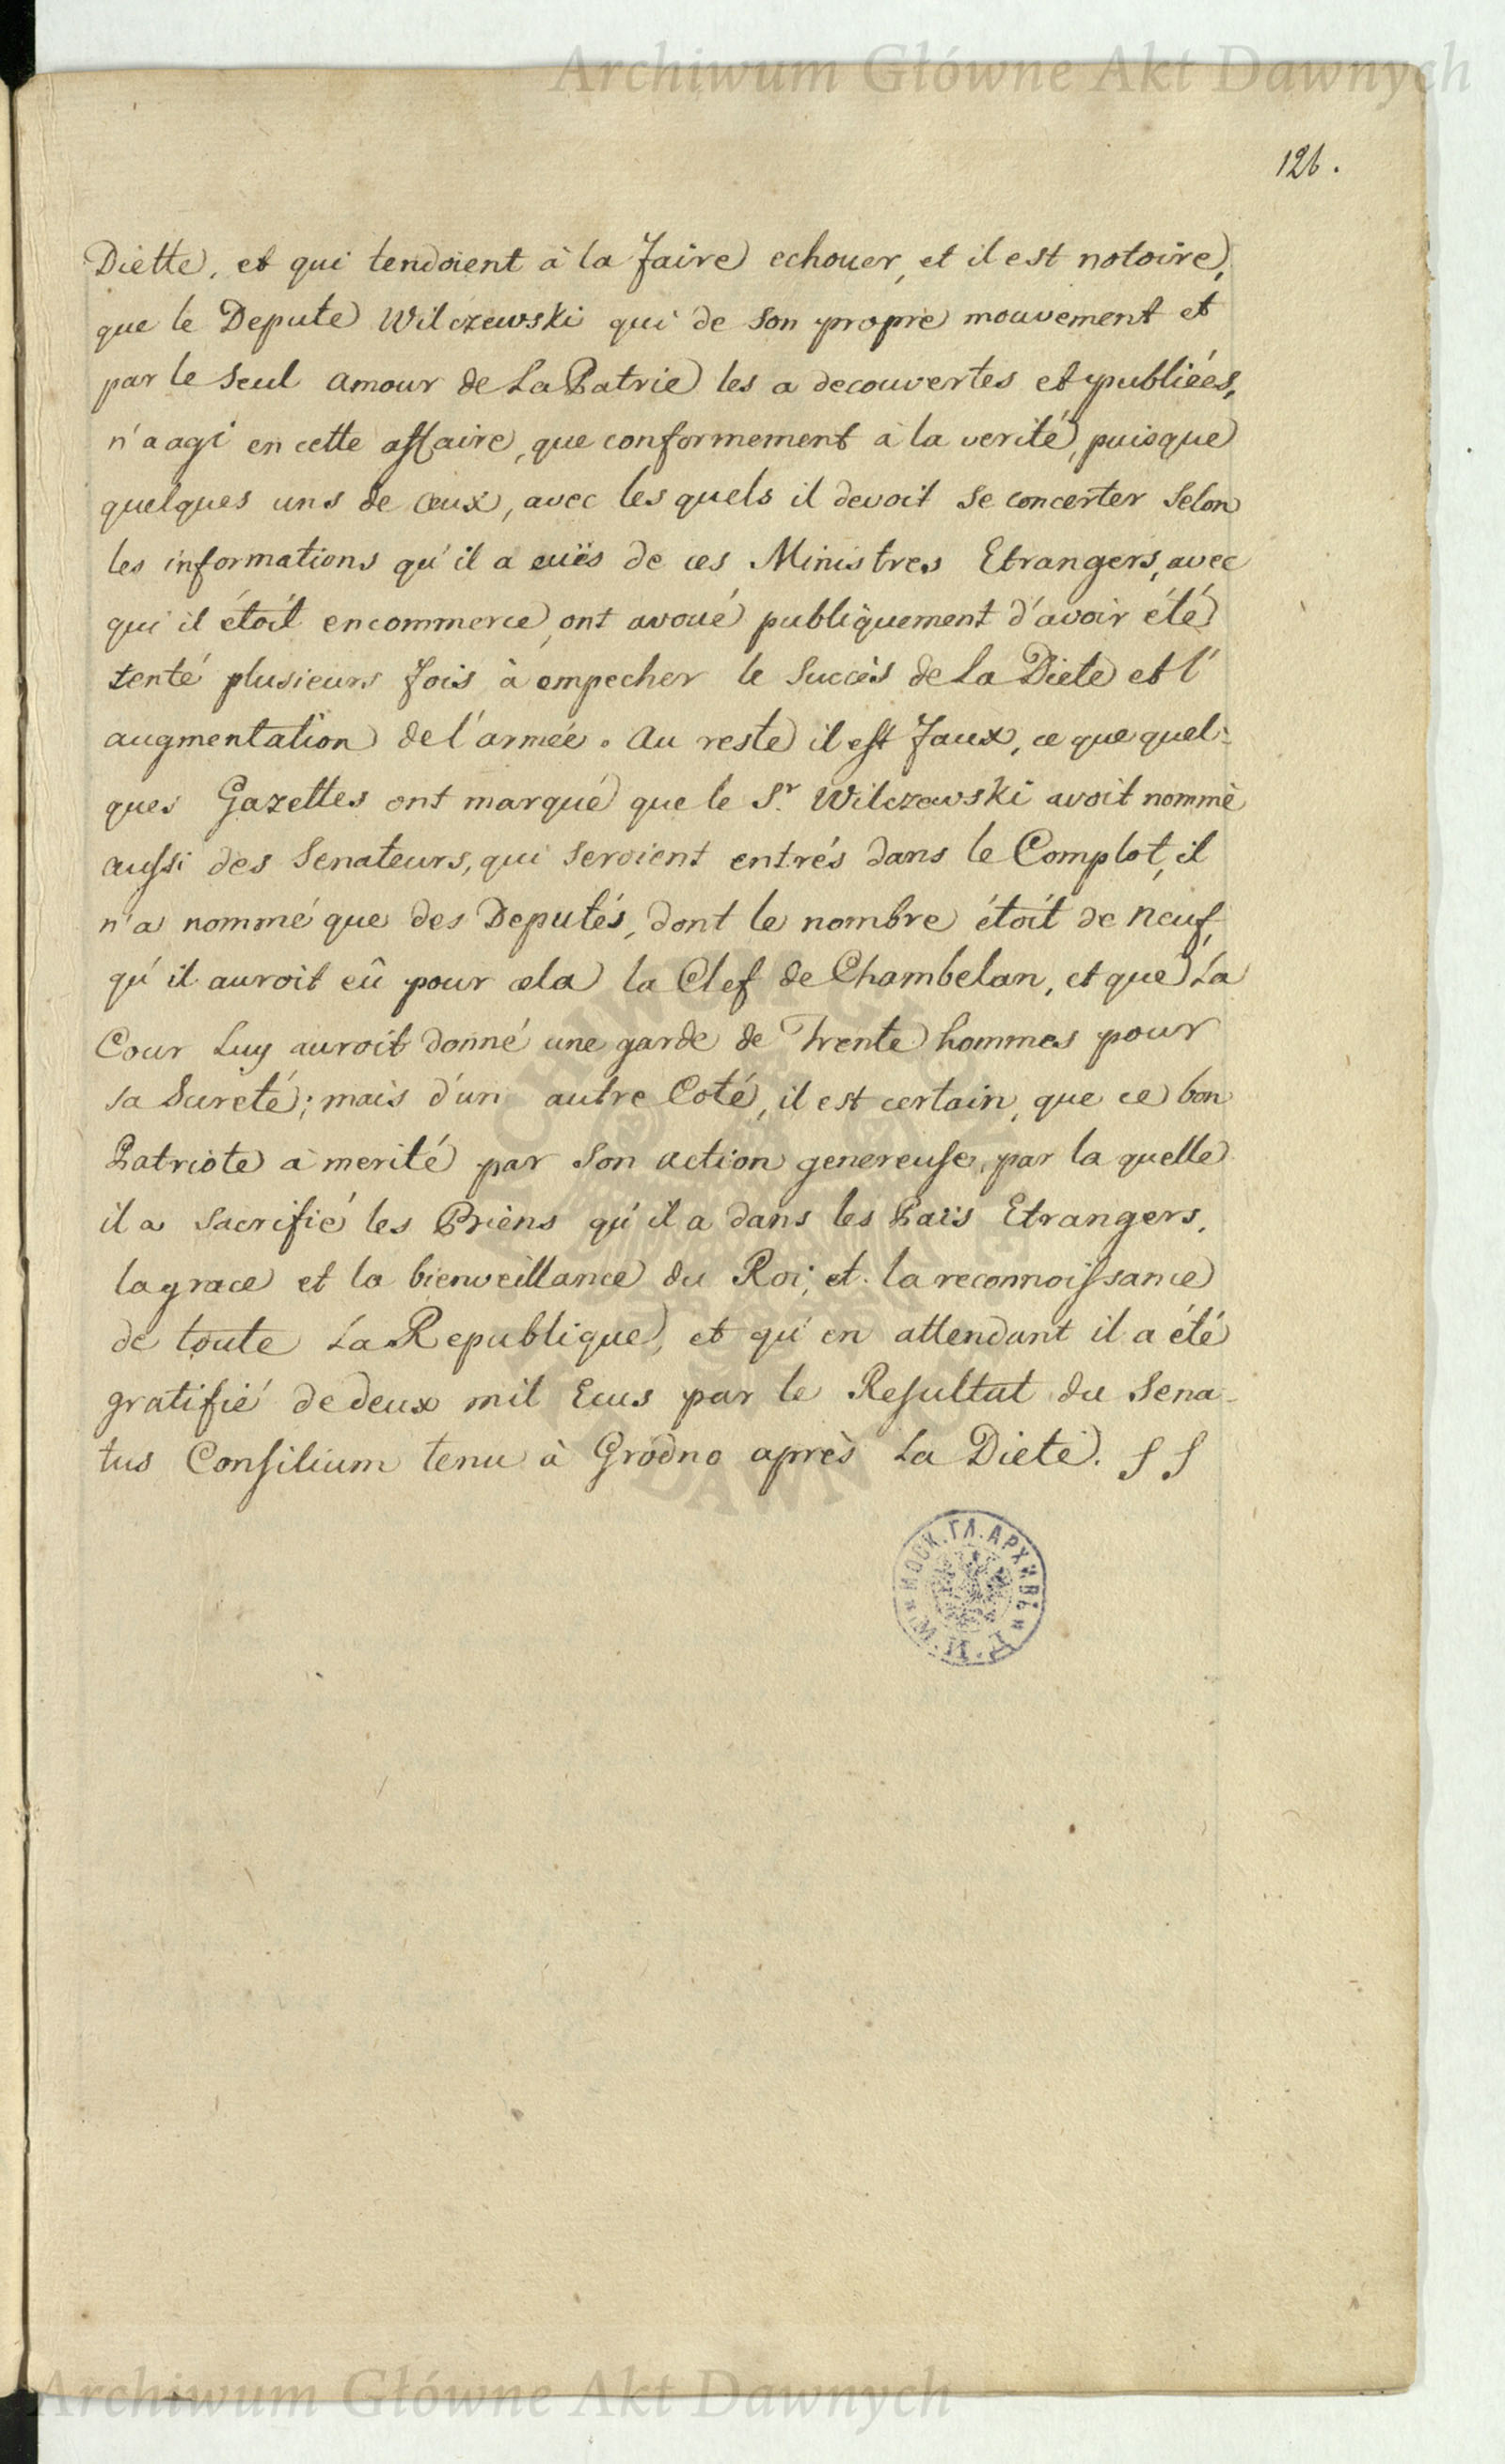 Archiwum Główne Akt Dawnych
126.
Diette, et qui tendoient à la faire echouer, et il est notoire,
que le Depute Wilczewski qui de Son propre mouvement et
par le Seul amour de La Patrie les a decouvertes et publiées,
n'a agi en cette affaire, que conformement à la verité, puisque
quelques uns de ceux, avec les quels il devoit Se concerter Selon
les informations qu'il a euës de ces Ministres Etrangers, avec
qui il étoit en commerce, ont avoué publiquement d'avoir été
tenté plusieurs fois à empecher le Succès de La Diete et l'
augmentation de l'armée. Au reste il est faux, ce que quel-
ques Gazettes ont marqué que le Sr. Wilczewski avoit nommè
aussi des Senateurs, qui Seroient entrés dans le Complot, il
n'a nommé que des Deputés, dont le nombre étoit de neuf,
qu'il auroit eû pour cela la Clef de Chambelan, et que La
Cour Luy auroit donné une garde de Trente hommes pour
sa Sureté; mais d'un autre Coté, il est certain, que ce bon
Patriote a merité par Son action genereuse, par la quelle
il a Sacrifié les Biens qu'il a dans les Païs Etrangers,
la grace et la bienveillance du Roi, et la reconnoissance
de toute La Republique, et qu'en attendant il a été
gratifié de deux mil Ecus par le Resultat du Sena-
tus Consilium tenu à Grodno après La Diete. SS
МОСК. ГЛ. АРХИВЪ М. И. Д.
Archiwum Główne Akt Dawnych